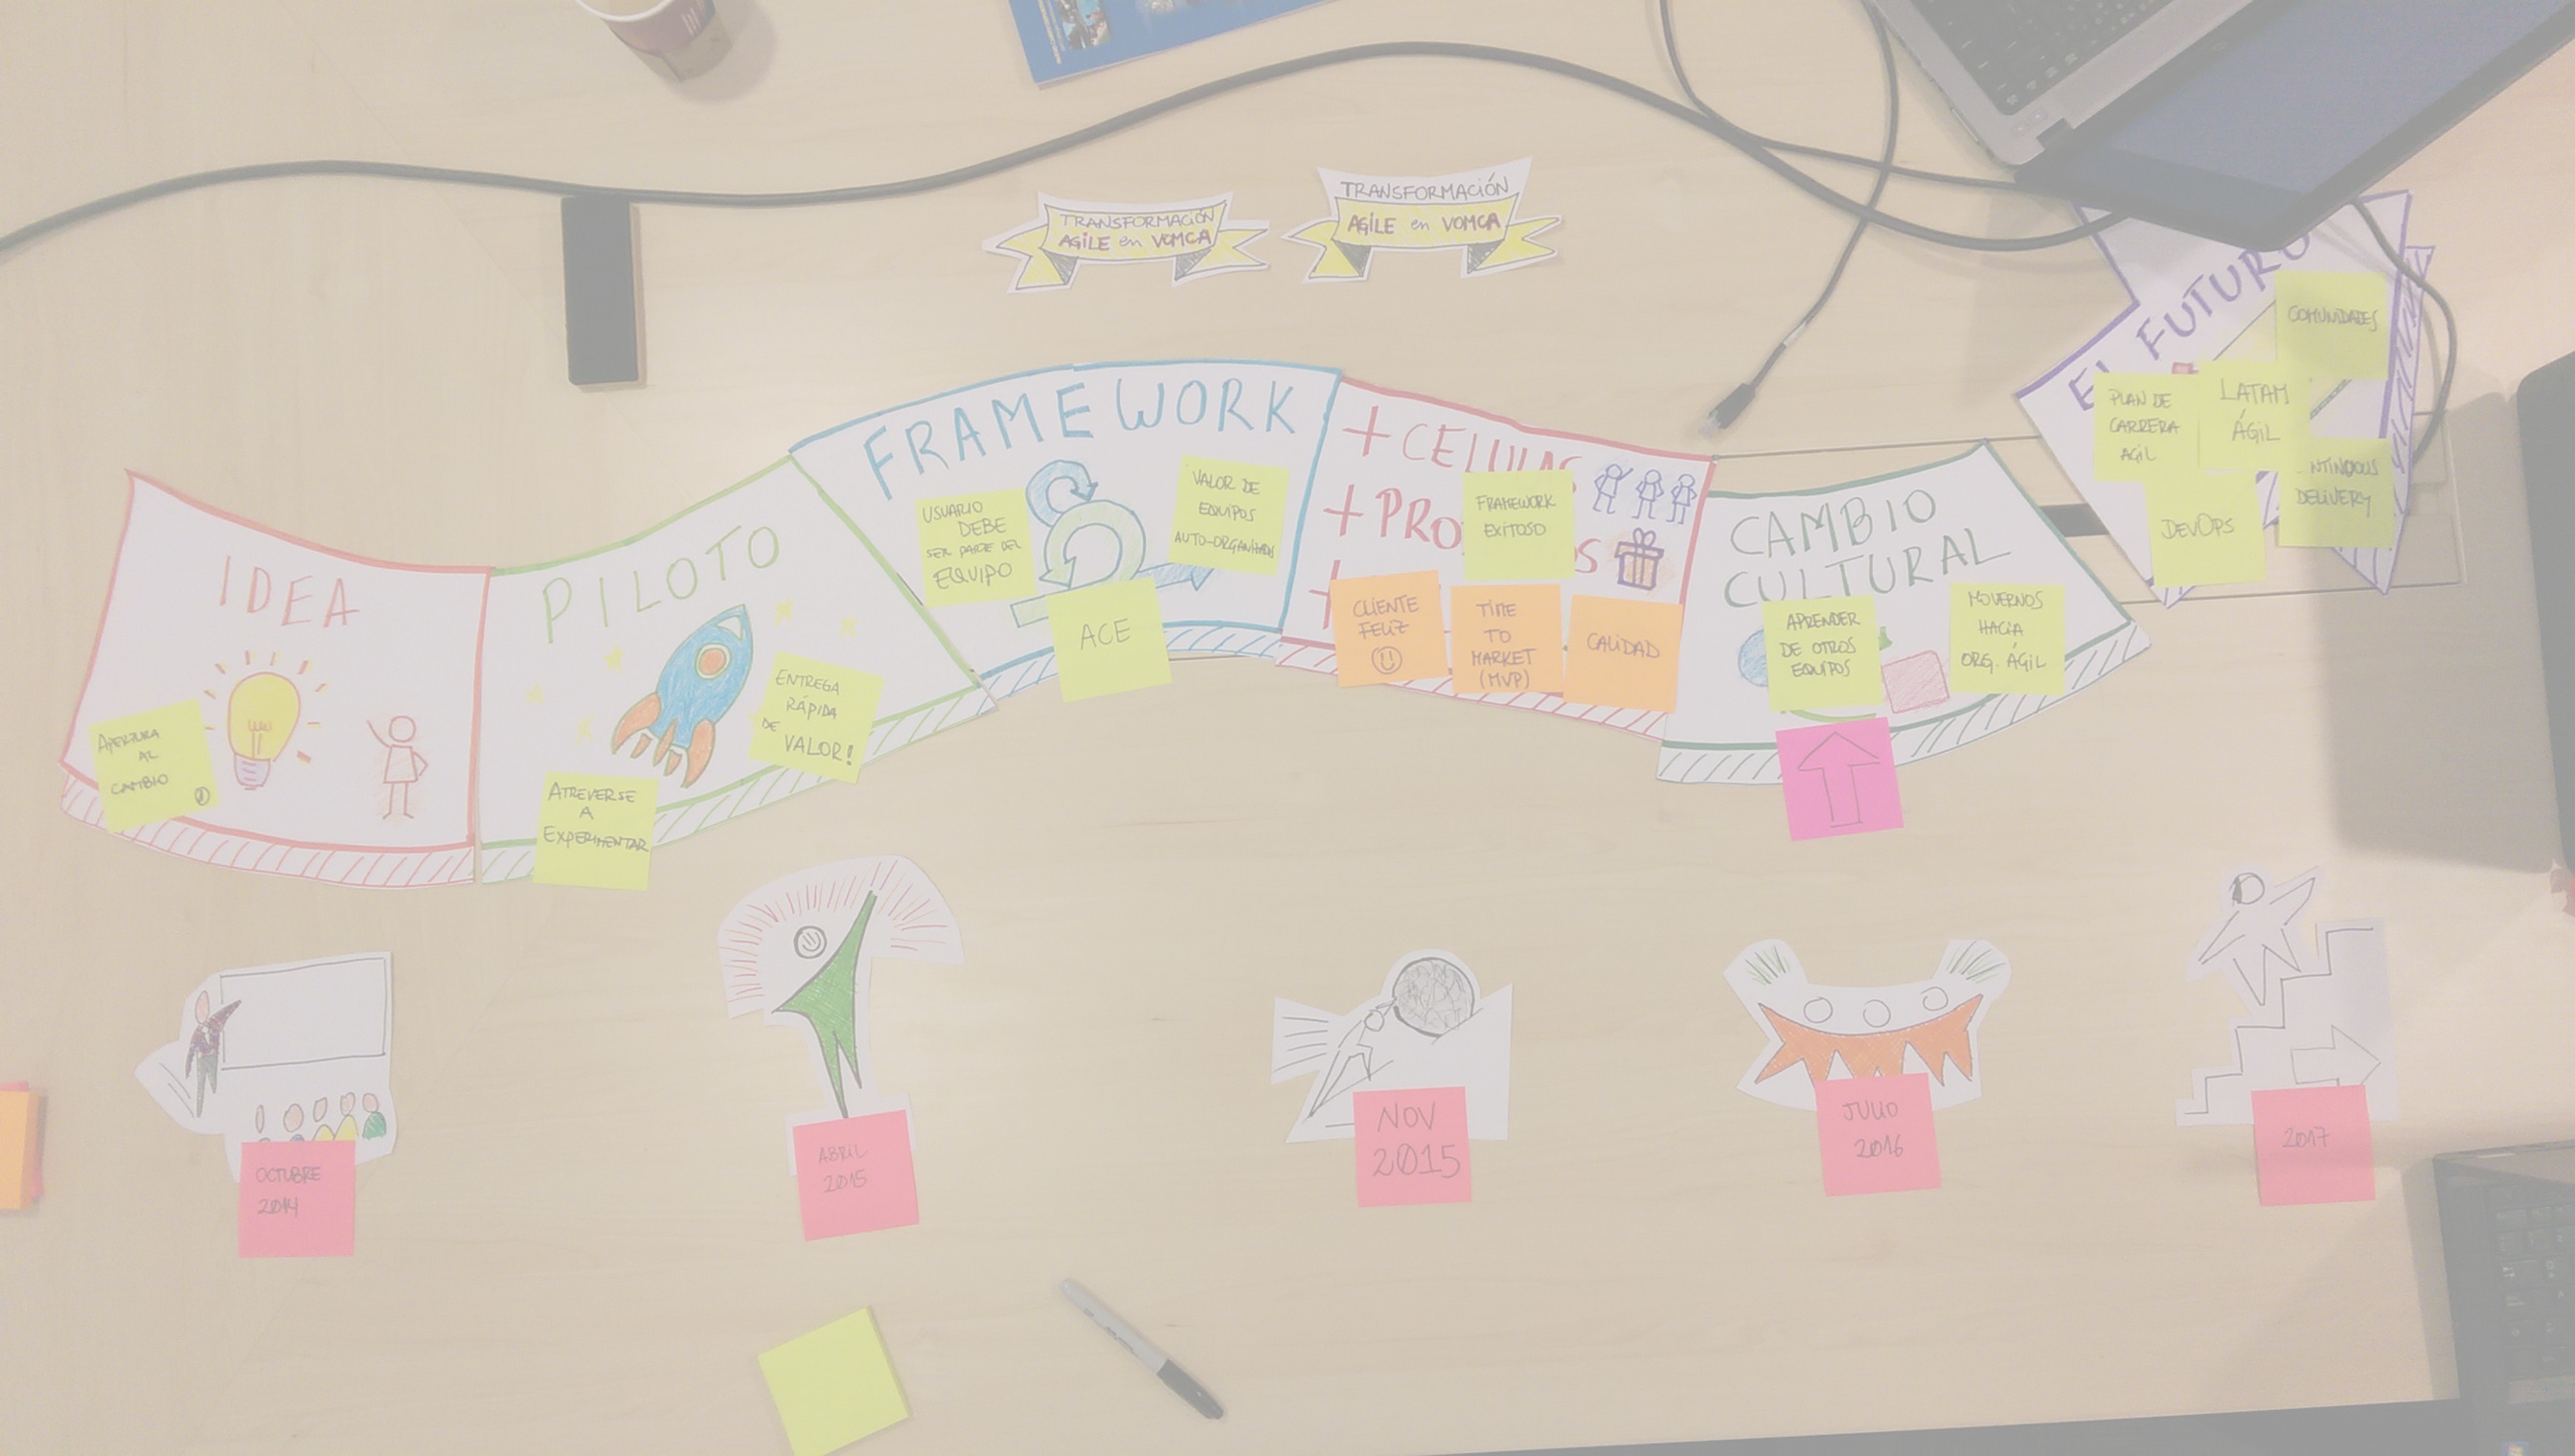 TRANSFORMACIÓN
AGILE en VOMCA
TRANSFORMACIÓN
AGILE en VOMCA
IDEA
APERTURA
AL
CAMBIO
PILOTO
ATREVERSE
A
EXPERIMENTAR
ENTREGA
RÁPIDA
DE
VALOR!
FRAMEWORK
USUARIO
DEBE
SER PARTE DEL
EQUIPO
VALOR DE
EQUIPOS
AUTO-ORGANIZADOS
ACE
+ CELULAS
+ PRO
OS
+
FRAMEWORK
EXITOSO
CLIENTE
FELIZ
TIME
TO
MARKET
(MVP)
CALIDAD
CAMBIO
CULTURAL
APRENDER
DE OTROS
EQUIPOS
MOVERNOS
HACIA
ORG. ÁGIL
EL FUTURO
COMUNIDADES
PLAN DE
CARRERA
AGIL
LATAM
ÁGIL
NTINOOUS
DELIVERY
DEVOPS
OCTUBRE
2014
ABRIL
2015
NOV
2015
JULIO
2016
2017